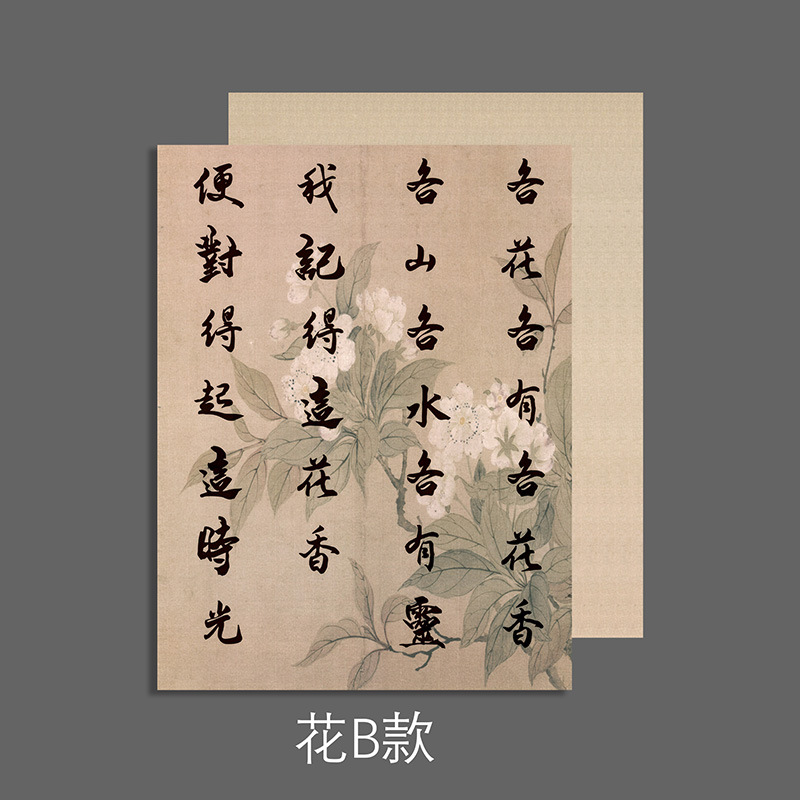 各花各有各花香
各山各水各有靈
我記得這花香
便對得起這時光
花B款